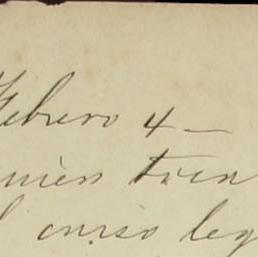 Febrero 4—
quien tien
l curso leg